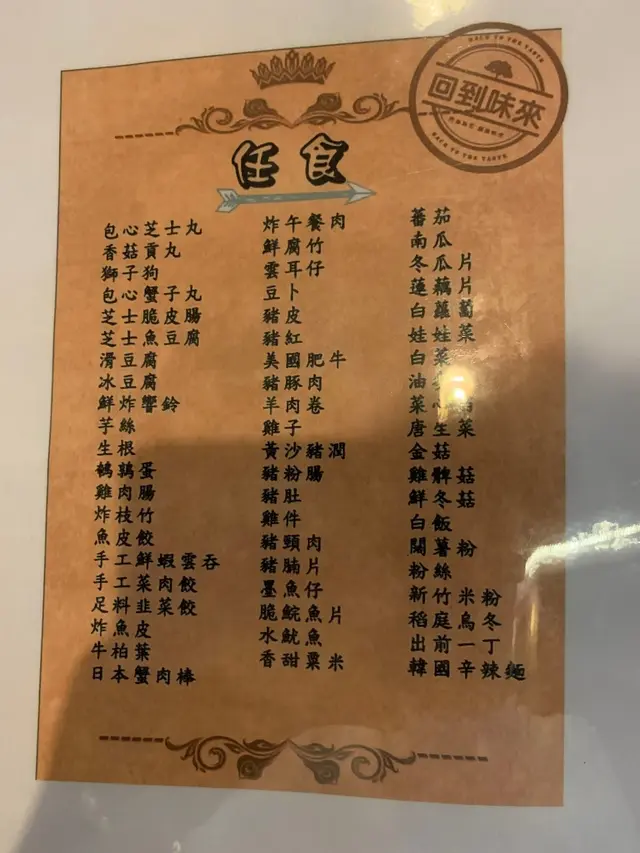 BACK TO THE TASTE
回到味來
BACK TO THE TASTE
任食
包心芝士丸
香菇貢丸
獅子狗
包心蟹子丸
芝士脆皮腸
芝士魚豆腐
滑豆腐
冰豆腐
鮮炸響鈴
芋絲
生根
鵪鶉蛋
雞肉腸
炸枝竹
魚皮餃
手工鮮蝦雲吞
手工菜肉餃
足料韭菜餃
炸魚皮
牛柏葉
日本蟹肉棒
炸午餐肉
鮮腐竹
雲耳仔
豆卜
豬皮
豬紅
美國肥牛
豬豚肉
羊肉卷
雞子
黃沙豬潤
豬粉腸
豬肚
雞件
豬頸肉
豬腩片
墨魚仔
脆鯇魚片
水魷魚
香甜粟米
蕃茄
南瓜
冬瓜片
蓮藕片
白蘿蔔
娃娃菜
白菜
油
菜心
唐生菜
金菇
雞髀菇
鮮冬菇
白飯
闊薯粉
粉絲
新竹米粉
稻庭烏冬
出前一丁
韓國辛辣麵